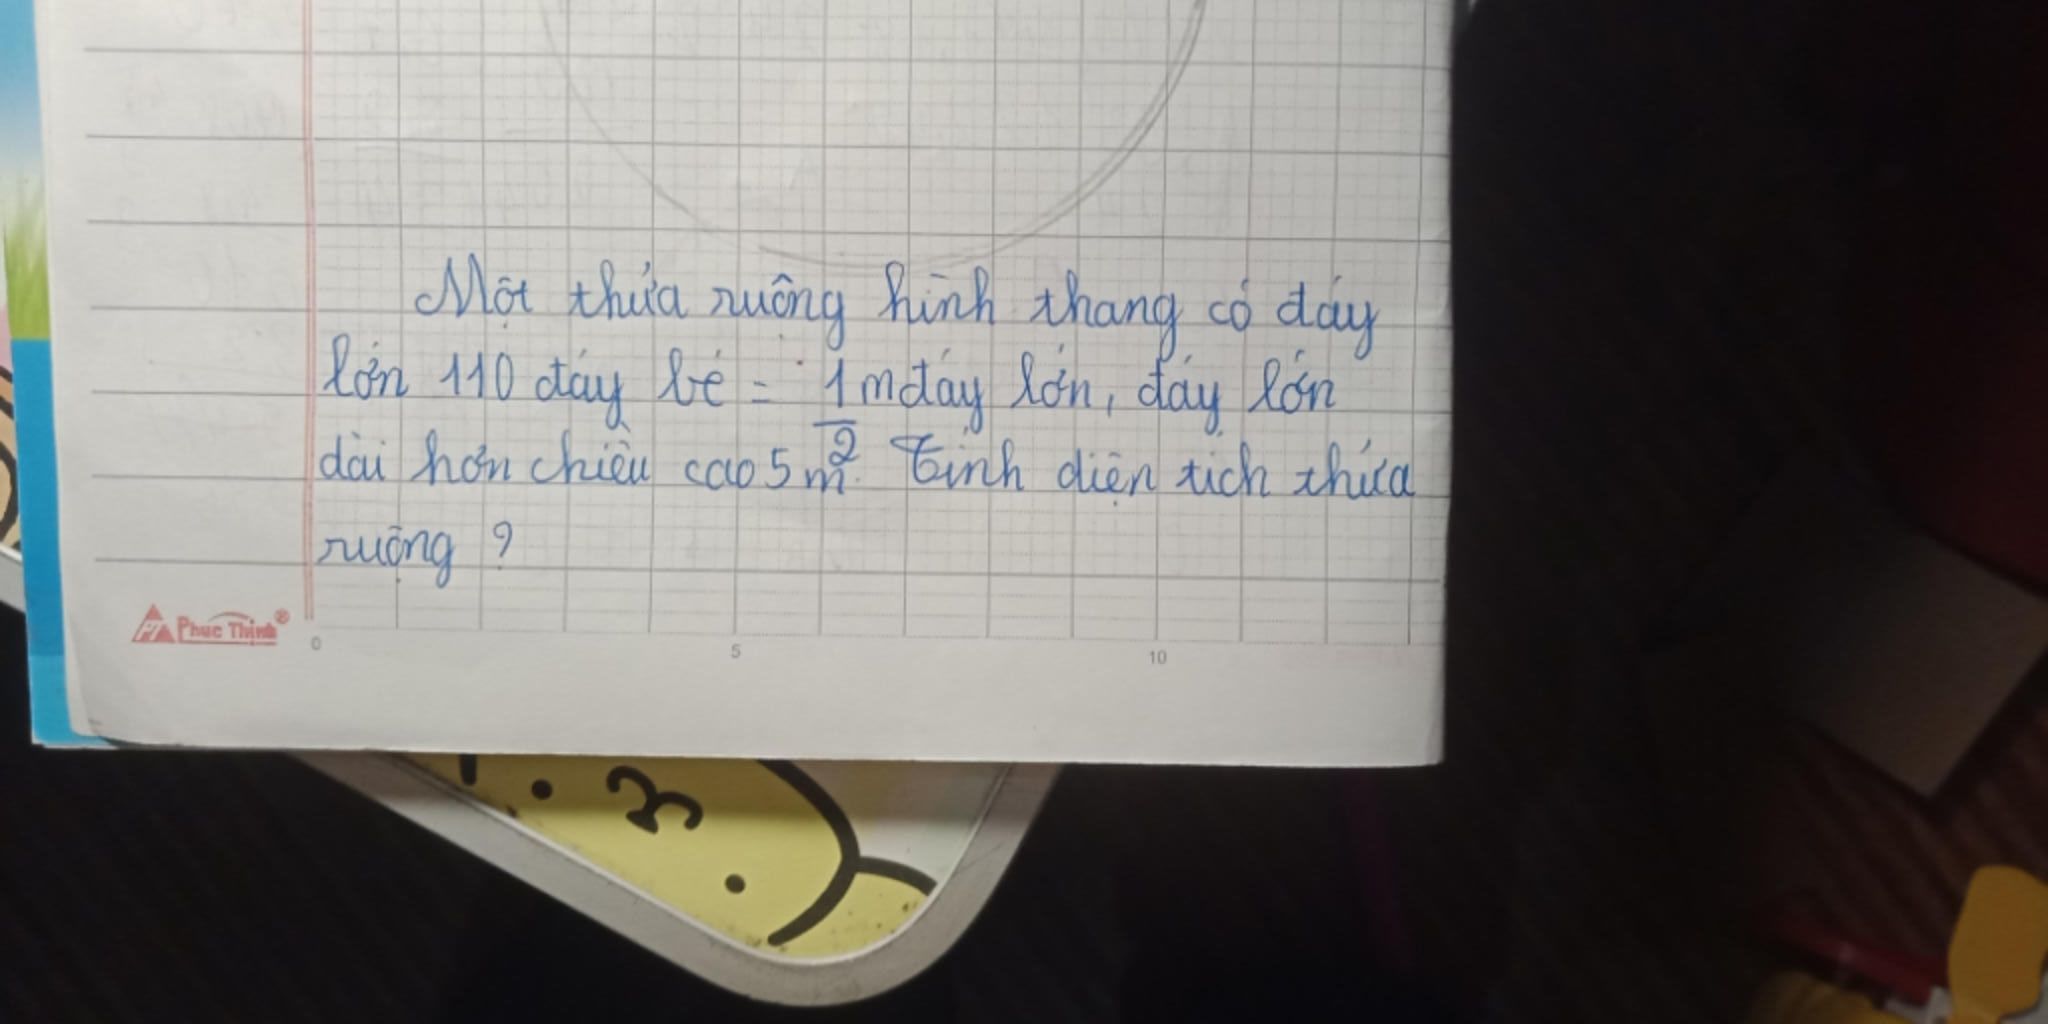 Một thửa ruộng hình thang có đáy
lớn 110 đáy bé = 1/2 m đáy lớn, đáy lớn
dài hơn chiều cao 5m. Tính diện tích thửa
ruộng ?
PT Phuc Thinh®
0 5 10